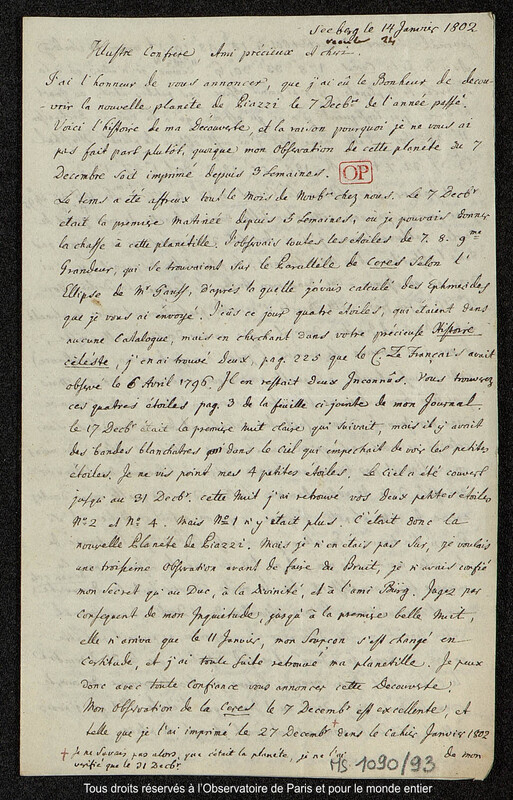 Seeberg le 14 Janvier 1802
Illustre Confrere, Ami précieux et cheri.
J'ai l'honneur de vous annoncer, que j'ai eû le Bonheur de decou-
-vrir la nouvelle planete de Piazzi le 7 Decbr de l'année passé.
Voici l'histoire de ma Découverte, et la raison pourquoi je ne vous ai
pas fait part plutôt, quoique mon Observation de cette planete du 7
Decembre soit imprimé depuis 3 Semaines. OP
Le tems a été affreux tout le mois de Novbr chez nous. Le 7 Decbr
était la premiere matinée depuis 5 Semaines, où je pouvais donner
la chasse à cette planetille. J'observais toutes les étoiles de 7. 8. 9me
Grandeur, qui se trouvaient sur le Parallèle de Ceres selon l'
Ellipse de Mr Gauss, d'après la quelle j'avais calculé des Ephemerides
que je vous ai envoyé. J'eûs ce jour quatre étoiles, qui étaient dans
aucune Catalogue, mais en cherchant dans votre précieuse Histoire
céleste, j'en ai trouvé deux, pag. 225 que le C. Le Français avait
observé le 6 Avril 1796. Il en restait deux Inconnûs. Vous trouverez
ces quatres étoiles pag. 3 de la feüille ci-jointe de mon Journal.
le 17 Decbr était la premiere nuit claire qui suivait, mais il y avait
des bandes blanchatres dans le Ciel qui impechait de voir les petites
étoiles. Je ne vis point mes 4 petites étoiles. Le Ciel a été couvert
jusqu'au 31 Decbr. cette Nuit j'ai retrouvé vos deux petites étoiles
No. 2 et No. 4. Mais No. 1 n'y était plus. C'était donc la
nouvelle Planete de Piazzi. Mais je n'en étais pas sur, je voulais
une troisieme Observation avant de faire du Bruit, je n'avais confié
mon Secret qu'au Duc, à la Divinité, et à l'ami Bürg. Jugez par
Consequent de mon Inquietude, jusqu'à la premiere belle Nuit,
elle n'arriva que le 11 Janvier, mon Soupçon s'est changé en
Certitude, et j'ai toute suite retrouvé ma planetille. Je peux
donc avec toute Confiance vous annoncer cette Decouverte.
Mon Observation de la Ceres le 7 Decembr est excellente, et
telle que je l'ai imprimé le 27 Decembr + dans le Cahier Janvier 1802
+ Je ne savais pas alors, que c'était la planete, je ne l'ai de mon
verifié que le 31 Decbr.
MS 1090/93
Tous droits réservés à l'Observatoire de Paris et pour le monde entier